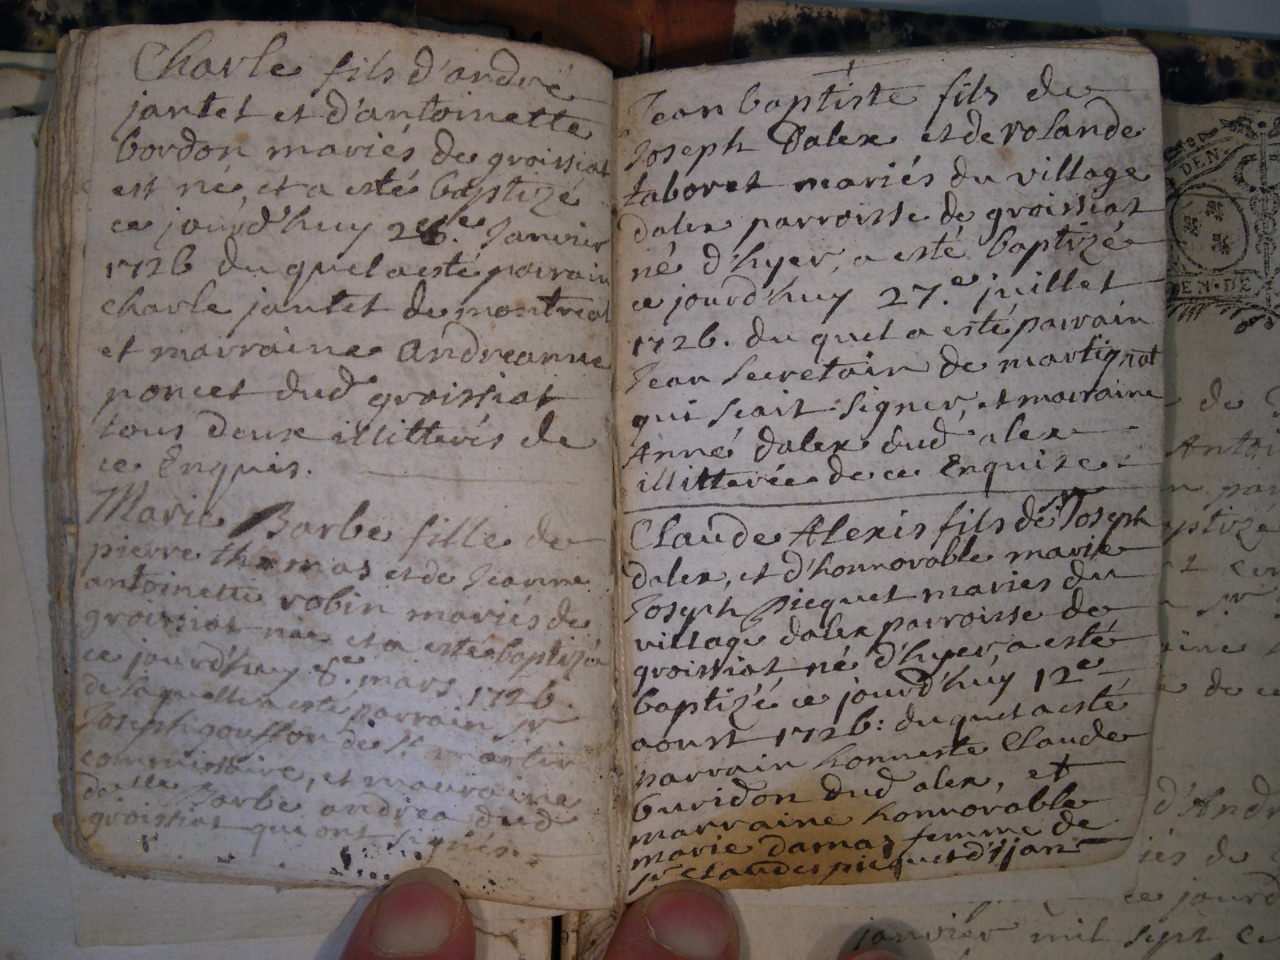 Charle fils d'andré
jantet et d'antoinette
bordon mariés de groissiat
est né et a esté baptizé
ce jourd'huy 26.e Janvier
1726 du quel a esté parrain
charle jantet de montreal
et marraine Andreanne
poncet dud groissiat
tous deux illitterés de
ce Enquis.
Marie Barbe fille de
pierre thomas et de Jeanne
antoinette robin mariés de
groissiat née et a esté baptizée
ce jourd'huy 8.e mars 1726.
de laquelle a esté parrain sr
Joseph gouffon de st martin
commissaire, et marraine
dalle Barbe andrea dud
groissiat qui ont signés.
Jean baptiste fils de
Joseph Dalex et de rolande
taboret mariés du village
dalex parroisse de groissiat
né d'hyer, a esté baptizé
ce jourd'huy 27.e juillet
1726. du quel a esté parrain
Jean secretain de martignat
qui scait signer, et marraine
Anne dalex dud alex
illitterée de ce Enquise.
Claude Alexis fils de Joseph
dalex, et d'honnorable marie
Joseph picquet mariés du
village dalex parroisse de
groissiat, né d'hyer, a esté
baptizé ce jourd'huy 12e
aoust 1726: du quel a esté
parrain honneste Claude
buridon dud alex, et
marraine honnorable
marie damas femme de
sr Claude picquet d'ijan
de
Antoi
d'Andr
iés de
ce jourd
janvier mil sept ce
DEN
EN·DE